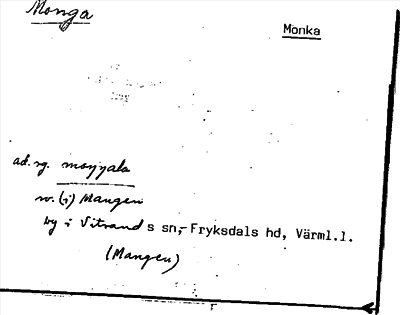 Monga
Monka
ad. sg. moŋŋala
w. (i) Mangen
by i Vitsand s sn, Fryksdals hd, Värml.l.
(Mangen)